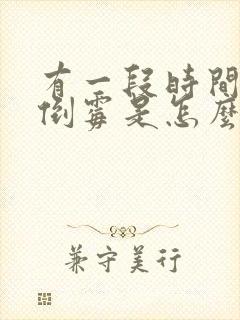 有一段時間
倒霉是怎麼
兼守美行